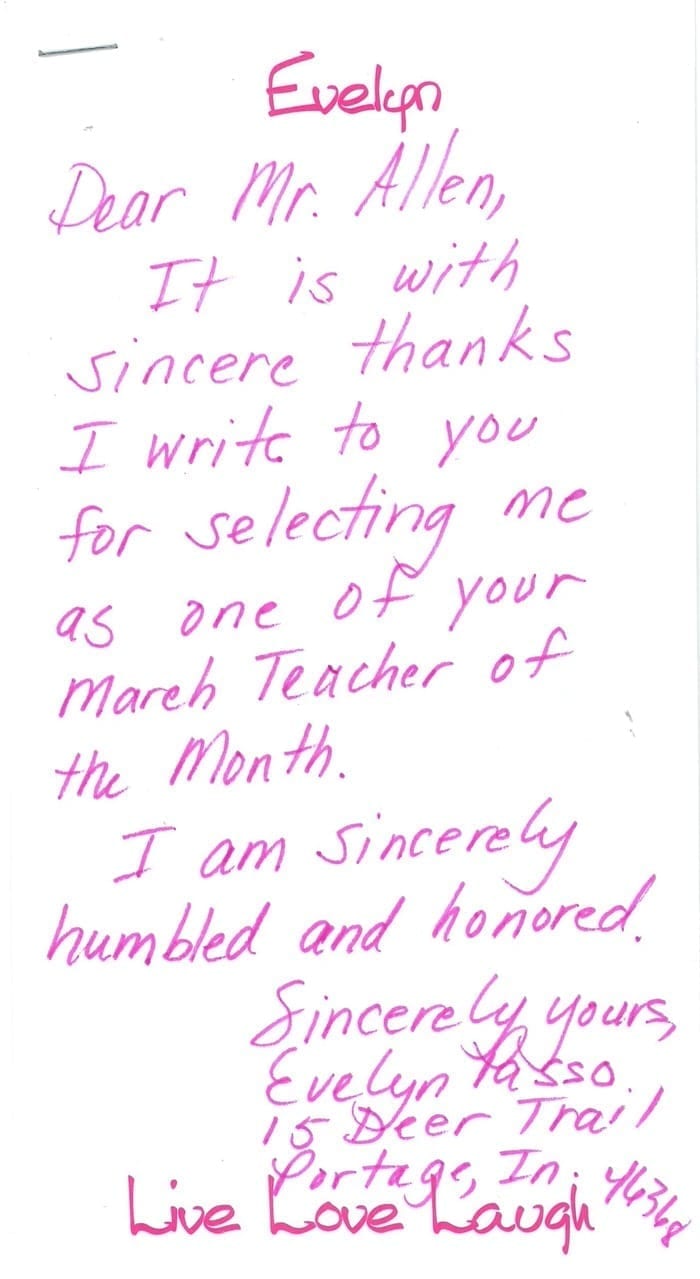 Evelyn
Dear Mr. Allen,
It is with
sincere thanks
I write to you
for selecting me
as one of your
March Teacher of
the Month.
I am sincerely
humbled and honored.
Sincerely yours,
Evelyn Passo
15 Deer Trail
Portage, In. 46368
Live Love Laugh